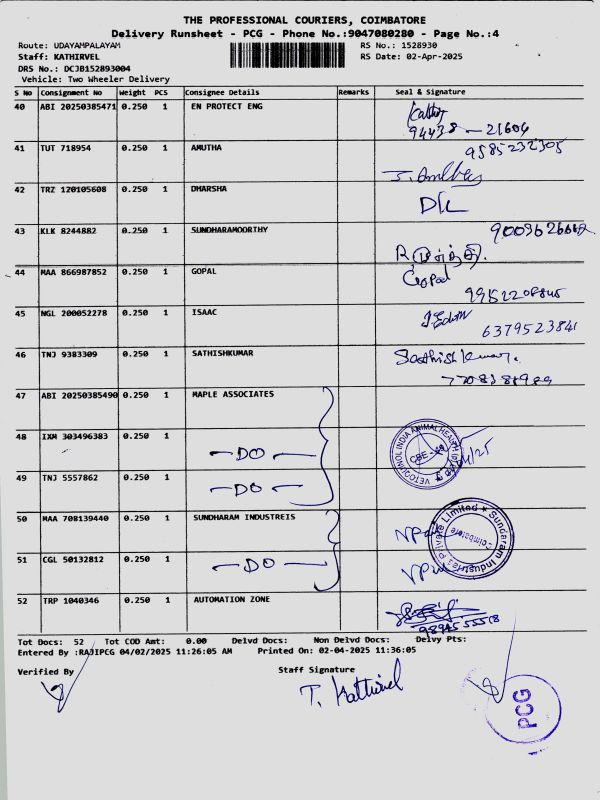 THE PROFESSIONAL COURIERS, COIMBATORE
Delivery Runsheet - PCG - Phone No.:9047080280 - Page No.:4
Route: UDAYAMPALAYAM RS No.: 1528930
Staff: KATHIRVEL RS Date: 02-Apr-2025
DRS No.: DCJB152893004
Vehicle: Two Wheeler Delivery
S No Consignment No Weight PCS Consignee Details Remarks Seal & Signature
40 ABI 20250385471 0.250 1 EN PROTECT ENG
94438-21604
41 TUT 718954 0.250 1 AMUTHA 9585232305
42 TRZ 120105608 0.250 1 DHARSHA
43 KLK 8244882 0.250 1 SUNDHARAMOORTHY
44 MAA 866987852 0.250 1 GOPAL Gopal
45 NGL 200052278 0.250 1 ISAAC J. Edwin
6379523841
46 TNJ 9383309 0.250 1 SATHISHKUMAR Sasthish kumar.
47 ABI 20250385490 0.250 1 MAPLE ASSOCIATES
48 IXM 303496383 0.250 1 -DO- VETOQUINOL INDIA ANIMAL HEALTH
CBE
49 TNJ 5557862 0.250 1 -DO-
50 MAA 708139440 0.250 1 SUNDHARAM INDUSTREIS Sundaram Industries Private Limited
Coimbatore
51 CGL 50132812 0.250 1 -DO-
52 TRP 1040346 0.250 1 AUTOMATION ZONE
Tot Docs: 52 Tot COD Amt: 0.00 Delvd Docs: Non Delvd Docs: Delvy Pts:
Entered By :RAJIPCG 04/02/2025 11:26:05 AM Printed On: 02-04-2025 11:36:05
Verified By Staff Signature
T. Kathirvel
PCG